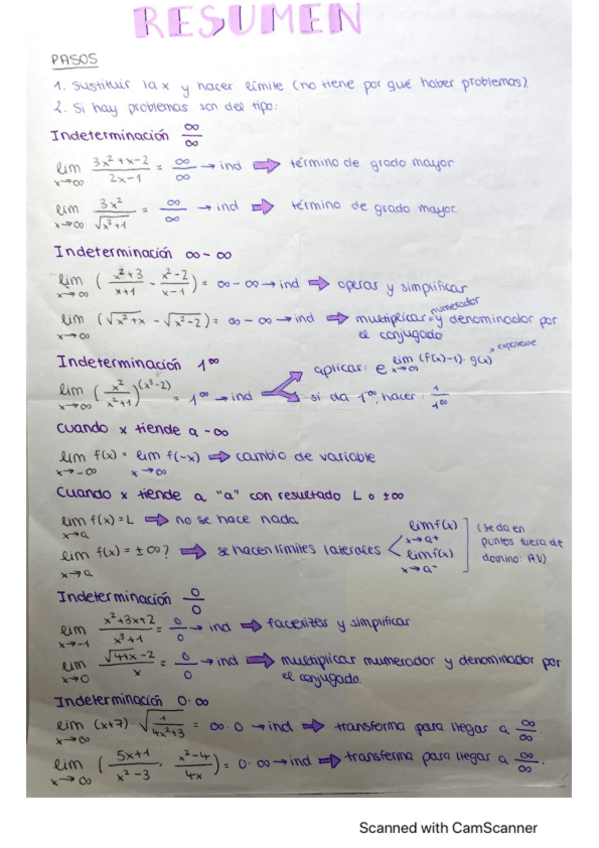 RESUMEN
PASOS
1. Sustituir la x y hacer límite (no tiene por qué haber problemas).
2. Si hay problemas son del tipo:
Indeterminación ∞/∞
lim x→∞ (3x²+x-2)/(2x-1) = ∞/∞ → ind ⇒ término de grado mayor
lim x→∞ 3x²/√(x³+1) = ∞/∞ → ind ⇒ término de grado mayor.
Indeterminación ∞-∞
lim x→∞ ((x²+3)/(x+1) - (x²-2)/(x-1)) = ∞-∞ → ind ⇒ operas y simplificar
lim x→∞ (√(x²+x) - √(x²-2)) = ∞-∞ → ind ⇒ multiplicar numerador y denominador por el conjugado
Indeterminación 1^∞
lim x→∞ (x²/(x²+1))^(x³-2) = 1^∞ → ind
aplicar: e^(lim x→∞ (f(x)-1)·g(x)) → exponente
si da 1^∞, hacer: 1/1^∞
Cuando x tiende a -∞
lim x→-∞ f(x) = lim x→∞ f(-x) ⇒ cambio de variable
Cuando x tiende a "a" con resultado L o ±∞
lim x→a f(x) = L ⇒ no se hace nada
lim x→a f(x) = ±∞? ⇒ se hacen límites laterales < lim x→a⁺ f(x) lim x→a⁻ f(x) (se da en puntos fuera de domino: AV)
Indeterminación 0/0
lim x→-1 (x²+3x+2)/(x³+1) = 0/0 → ind ⇒ factorizas y simplificar
lim x→0 (√(4+x) -2)/x = 0/0 → ind ⇒ multiplicar numerador y denominador por el conjugado.
Indeterminación 0·∞
lim x→∞ (x+7) √(1/(4x²+3)) = ∞·0 → ind ⇒ transforma para llegar a ∞/∞.
lim x→∞ ((5x+1)/(x²-3) · (x²-4)/(4x)) = 0·∞ → ind ⇒ transforma para llegar a ∞/∞.
Scanned with CamScanner